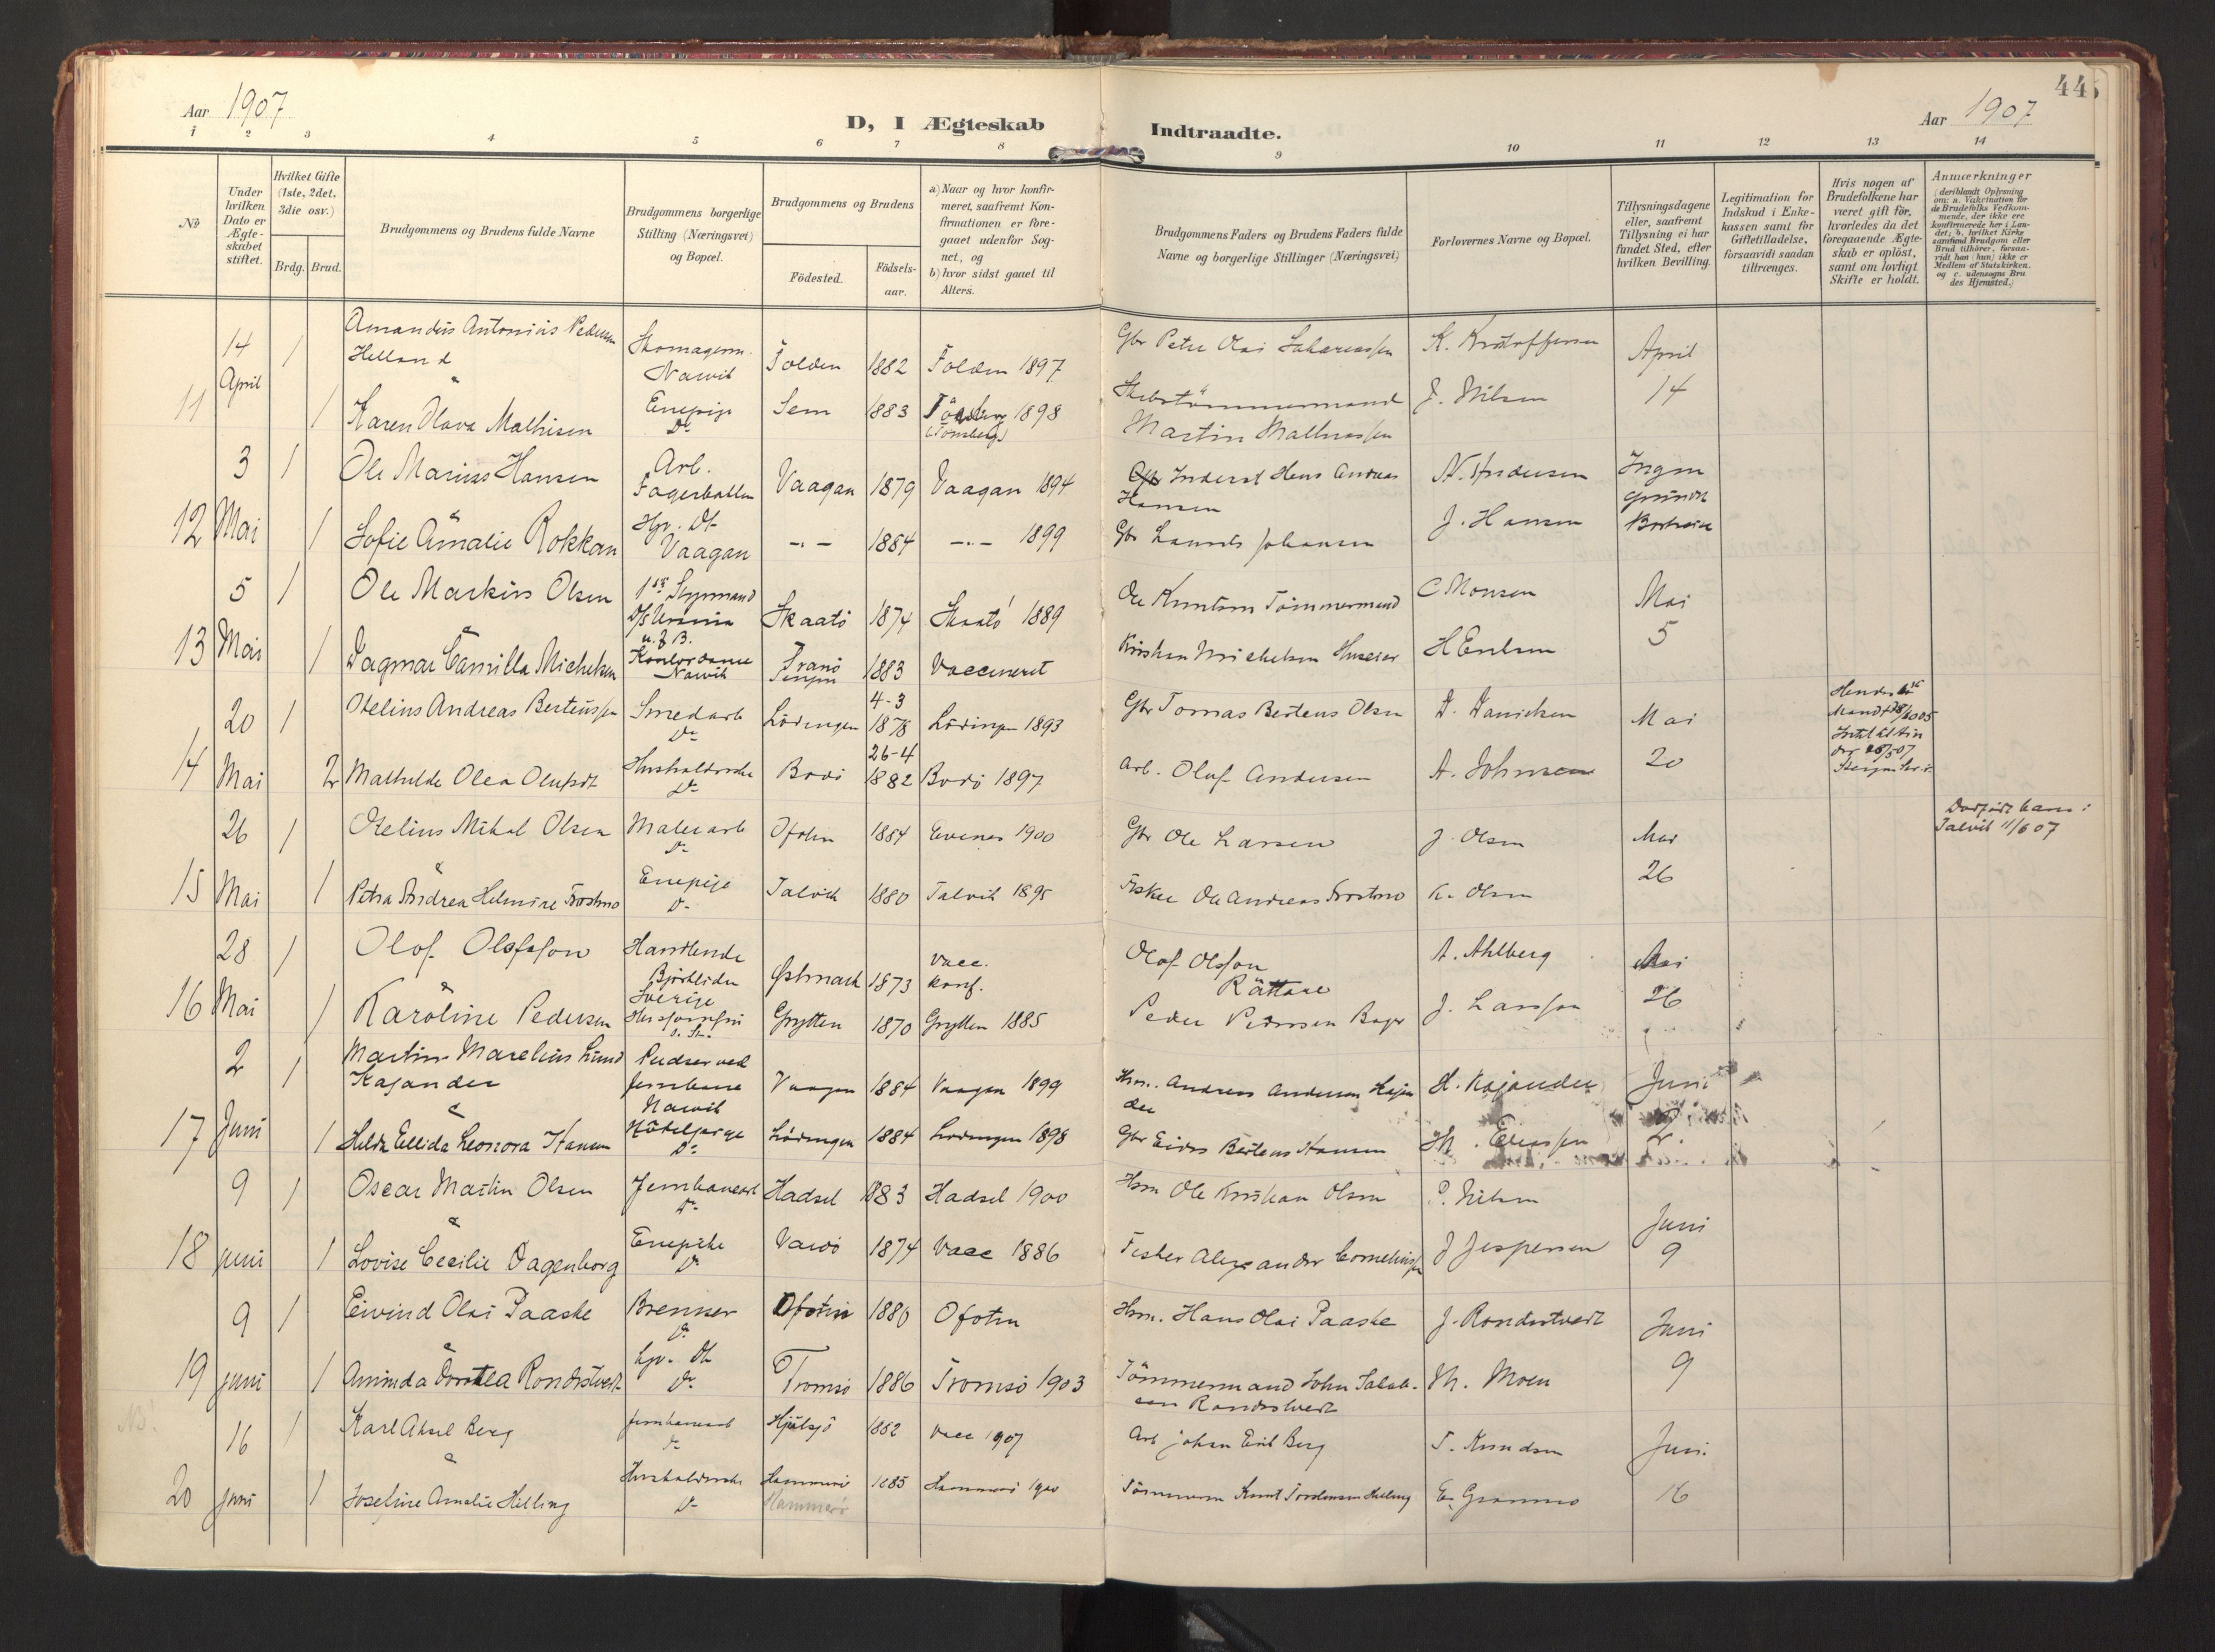 445
Aar 1907
D, I Ægteskab Indtraadte.
Aar 1907
1 2 3 4 5 6 7 8 9 10 11 12 13 14
No
Under hvilken Dato er Ægteskabet stiftet.
Hvilket Gifte (1ste, 2det, 3die osv.)
Brdg. Brud.
Brudgommens og Brudens fulde Navne
Brudgommens borgerlige Stilling (Næringsvei) og Bopæl.
Brudgommens og Brudens
Födested.
Födsels-aar.
a) Naar og hvor konfirmeret, saafremt Konfirmationen er foregaaet udenfor Sognet, og
b) hvor sidst gaaet til Alters.
Brudgommens Faders og Brudens Faders fulde Navne og borgerlige Stillinger (Næringsvei)
Forlovernes Navne og Bopæl.
Tillysningsdagene eller, saafremt Tillysning ei har fundet Sted, efter hvilken Bevilling.
Legitimation for Indskud i Enkekassen samt for Giftetilladelse, forsaavidt saadan tiltrænges.
Hvis nogen af Brudefolkene har været gift för, hvorledes da det foregaaende Ægteskab er oplöst, samt om lovligt Skifte er holdt.
Anmærkninger
(deriblandt Oplysning om: a. Vakcination for de Brudefolks Vedkommende, der ikke ere konfirmerede her i Landet; b. hvilket Kirkesamfund Brudgom eller Brud tilhörer, forsaavidt han (hun) ikke er Medlem af Statskirken. og c. udensogns Brudes Hjemsted.)
14 April 1 Amandus Antonius Pedersen Helland Narvik Folden 1882 Folden 1897 Gbr Peter Olai K. Kristoffersen April
&
11 1 Karen Olava Mathisen Enepige Do Sem 1883 1898 (Tönsberg) Martin Mathiassen J. Nilsen 14
3 1 Ole Marius Hansen Arb. Vaagan 1879 Vaagan 1894 Inderst Hans Andreas Hansen N. Andersen Ingen
&
12 Mai 1 Sofie Amalie Rokkan Vaagan -"- 1884 -"- 1899 Gbr Johansen J. Hansen
5 1 Ole Markus Olsen 1ste Styrmand Skaatö 1874 Skaatö 1889 Ole Knutsen Tömmermand C Monsen Mai
&
13 Mai 1 Dagmar Camilla Michelsen Kontordame Narvik Tranö 1883 Vaccineret Kristian Michelsen H Erlsen 5
20 1 Otelius Andreas Berteussen Smedarb Do Lödingen 4-3 1878 Lödingen 1893 Gbr Tomas Berteus Olsen D. Danielsen Mai
14 Mai 2 Mathilde Olea Husholderske Do Bodö 26-4 1882 Bodö 1897 Arb. Olaf Andersen A. Johnsen 20
26 1 Otelius Mikal Olsen Malerarb Do Ofoten 1884 Evenes 1900 Gbr Ole Larsen J. Olsen Mai
&
15 Mai 1 Petra Andrea Helmine Trostmo Enepige Do Talvik 1880 Talvik 1895 Fisker Ole Andreas Trostmo K. Olsen 26
Talvik 11/6 07
28 1 Olof Olofsson Handlende Björkliden Sverige Östmark 1873 vacc. konf. Olof Olsson Rättare A. Ahlberg Mai
&
16 Mai 1 Karoline Pedersen Grytten 1870 Grytten 1885 Peder Pedersen J. Larsson 26
2 1 Martin Marelius Lund Kajander Pudser ved Jernbane Narvik Vaagan 1884 Vaagan 1899 Hsm. Andreas Andersen Kajander H. Kajander Juni
&
17 Juni 1 Hilda Ellida Leonora Hansen Do Lödingen 1884 Lödingen 1898 Gbr Berteus Hansen Eliassen 2.
9 1 Oscar Martin Olsen Jernbanearb Do Hadsel 1883 Hadsel 1900 Hsm Ole Kristian Olsen P. Nilsen
&
18 juni 1 Lovise Cecilie Dagenborg Enepike Do Vardö 1874 Vacc 1886 Fisker Alexander Corneliussen J Jespersen Juni 9
9 1 Eivind Olai Paaske Bremser Do Ofoten 1880 Ofoten Hsm. Hans Olai Paaske J. Rondestvedt Juni
&
19 juni 1 Aminda Dorthea Rondestvedt Do Tromsö 1886 Tromsö 1903 Tömmermand John Rondestvedt M. Moen 9
16 1 Karl Aksel Berg Jernbanearb Do 1882 vacc 1907 Arb Johan Erik Berg T. Knudsen Juni
&
20 juni 1 Josefine Amalie Helling Husholderske Do Hammerö Hammerö 1885 Hammerö 1900 Tömmerm Knut Helling E. Grammo 16